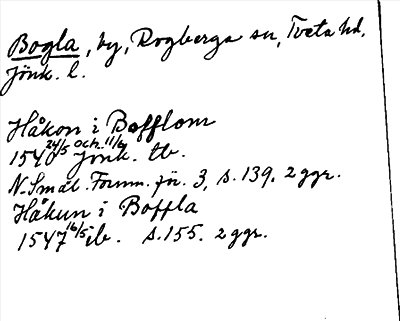 Bogla, by, Rogberga sn, Tveta hd,
Jönk. l.
Håkon i Bofflom
1540 24/5 och 11/6 Jönk. tb.
N. Smål. Fornm. för. 3, s. 139. 2 ggr.
Håkun i Boffla
1547 16/5 ib. s. 155. 2 ggr.